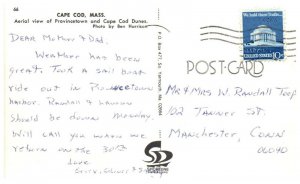 66
CAPE COD, MASS.
Aerial view of Provincetown and Cape Cod Dunes.
Photo by Ben Harrison
DEAR Mother & Dad.
Weather has been
great. Took a sail boat
ride out in Provincetown
harbor. Randall &
should be down Monday.
Will call you when we
return on the 30th
Love
P.O. Box 471, So. Yarmouth, Ma 02664
POST-CARD
We hold these Truths...
10c
Mr & Mrs W. Randall Toop
102 Tanner St.
Manchester, Conn
06040